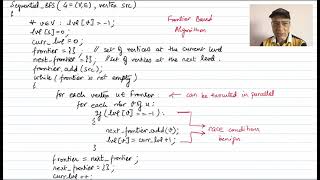 Sequential_BFS ( G=(V,E), vertex src)
{
∀ v∈V : lvl[v] = -1;
lvl[s]=0;
curr_lvl=0;
frontier = {}; // set of vertices at the current level
next_frontier = {}; // set of vertices at the next level.
frontier.add(src);
while (frontier is not empty)
{
for each vertex u ∈ frontier : can be executed in parallel
for each nbr v of u:
if (lvl[v] == -1):
{
next_frontier.add(v);
lvl[v] = curr_lvl+1;
}
race conditions
benign
frontier = next_frontier;
next_frontier = {};
curr_lvl++;
Frontier Based
Algorithm